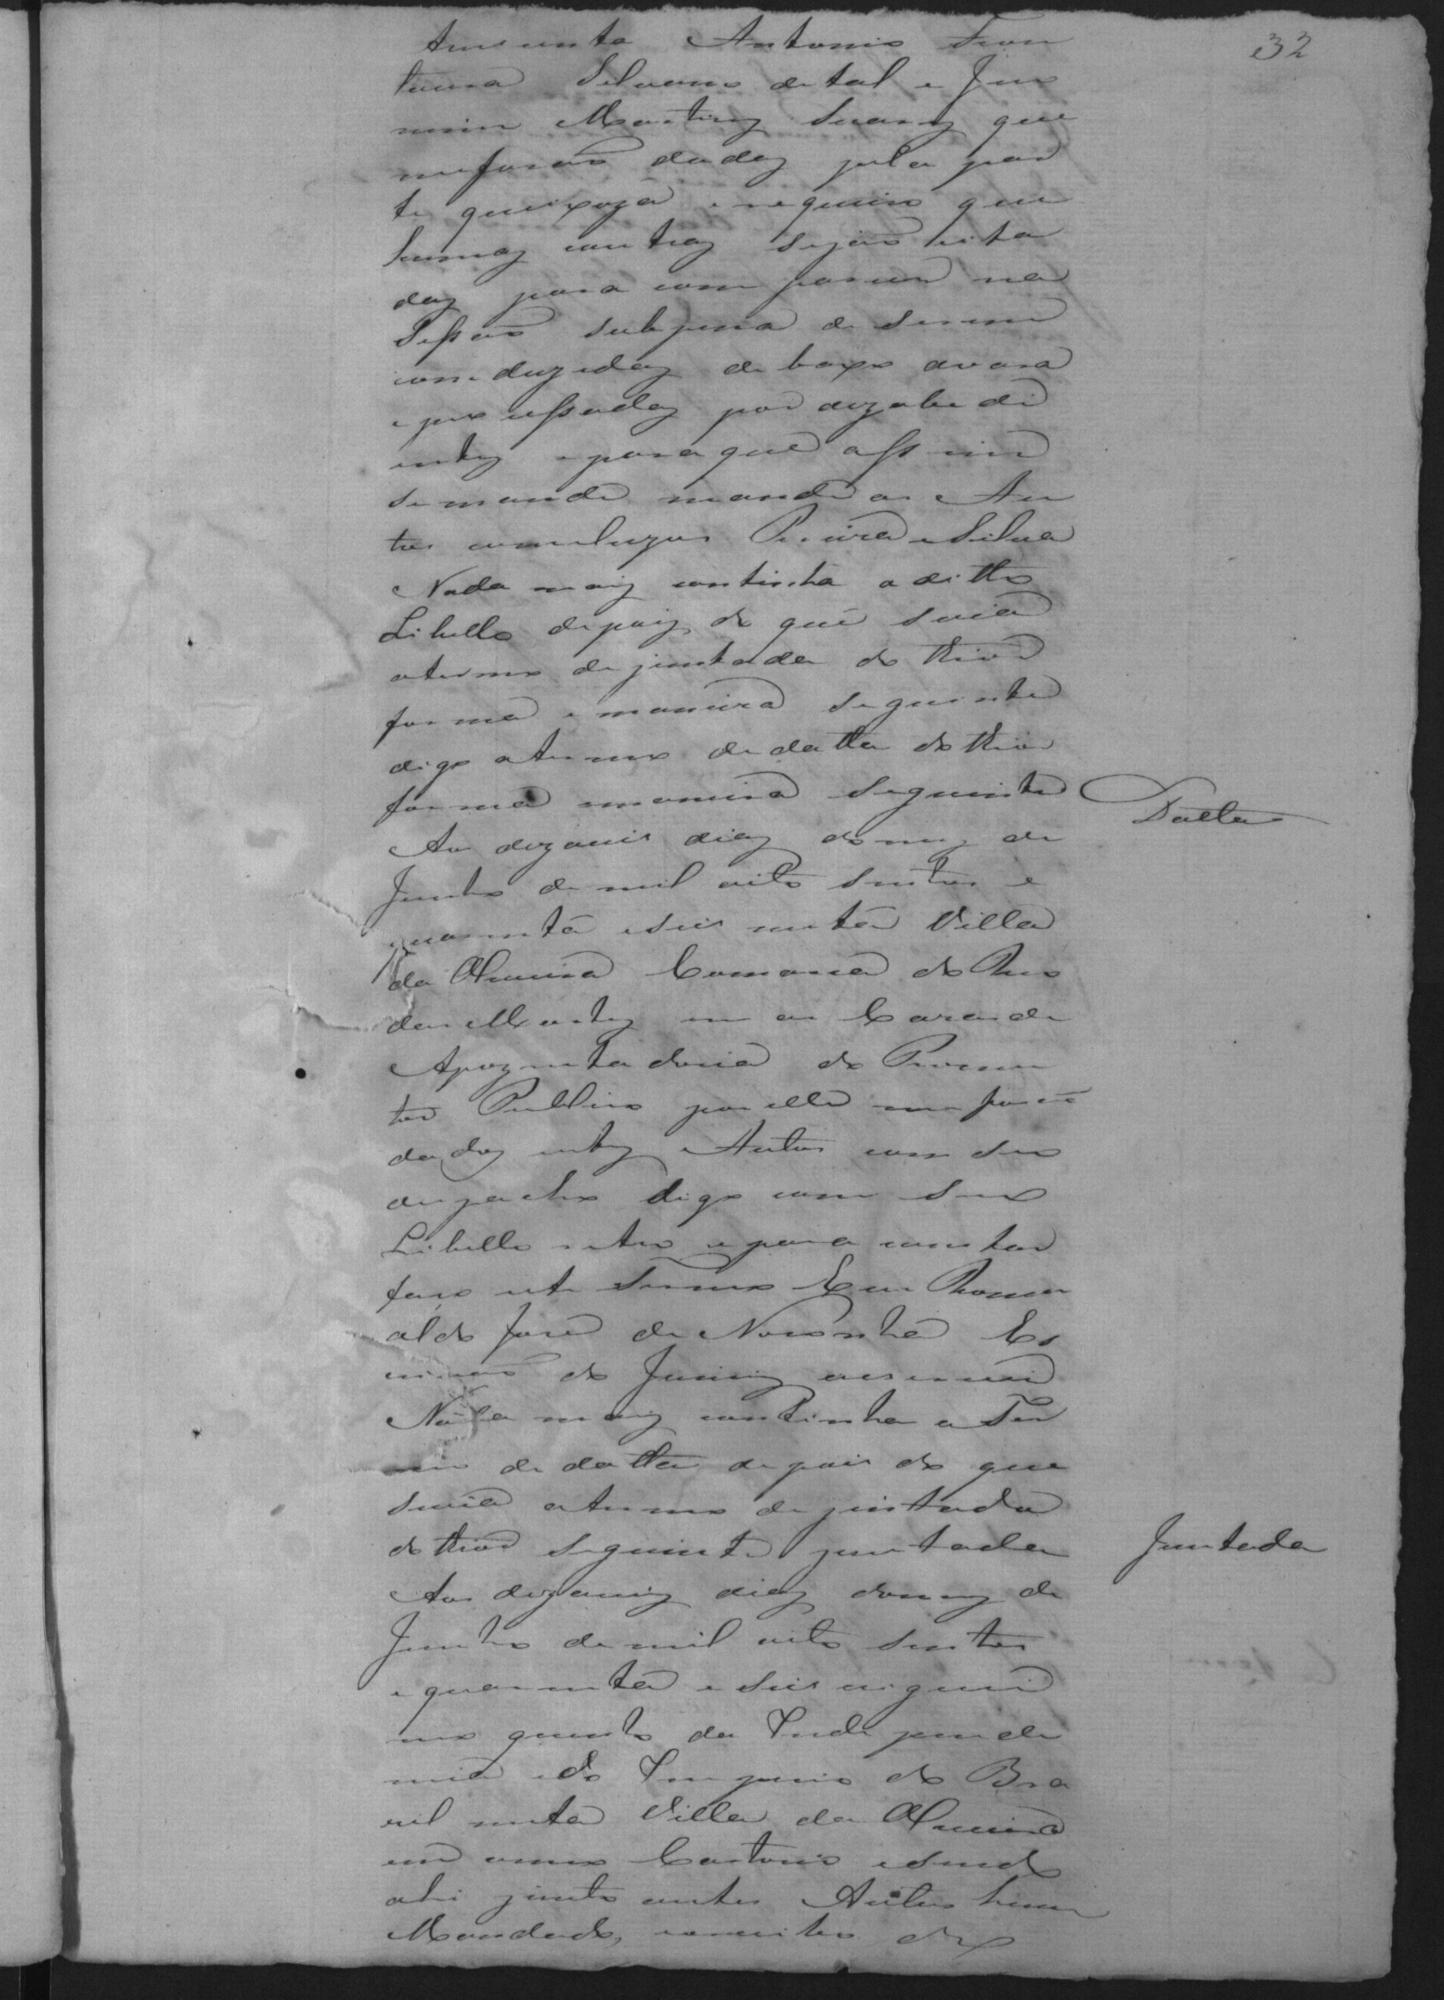 32
Antonio Fon
Silvano de tal e
Martins Soares que
me forão dadas pela par
te queixoza e requeiro que
humas e outras sejão cita
das para comparecer na
Sessão sub pena de serem
conduzidas de baxo de vara
e processadas por dezobedi
entes e para que assim
se mande mande os Au
tos concluzos Pereira e Silva
Nada mais continha o ditto
Libello depois do que se via
o termo de juntada do thior
forma e maneira seguinte
digo o termo de datta do thior
forma e maneira seguinte
Datta
Aos dezanove dias do mez de
Junho de mil oito sentos e
quarenta e seis nesta Villa
da Comarca do Rio
das Mortes em as Cazas de
Apozentadoria do Promo
tor Publico por elle me forão
dados estes Autos com seu
despacho digo com seu
Libello retro e para constar
faço este Termo Eu Romu
aldo José de Noronha Es
crivão do Juri que escrevi
Nada mais continha o Ter
mo de datta depois do que
se via o termo de juntada
do thior seguinte juntada
Juntada
Aos dezanove dias do mez de
Junho de mil oito sentos
e quarenta e seis vigessi
mo quinto da Independen
cia e do Imperio do Bra
zil nesta Villa da
em o meu Cartorio e sendo
ahi junto a estes Autos hum
Mandado, escritto do